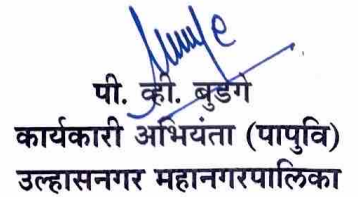 पी. व्ही. बुडगे
कार्यकारी अभियंता (पापुवि)
उल्हासनगर महानगरपालिका